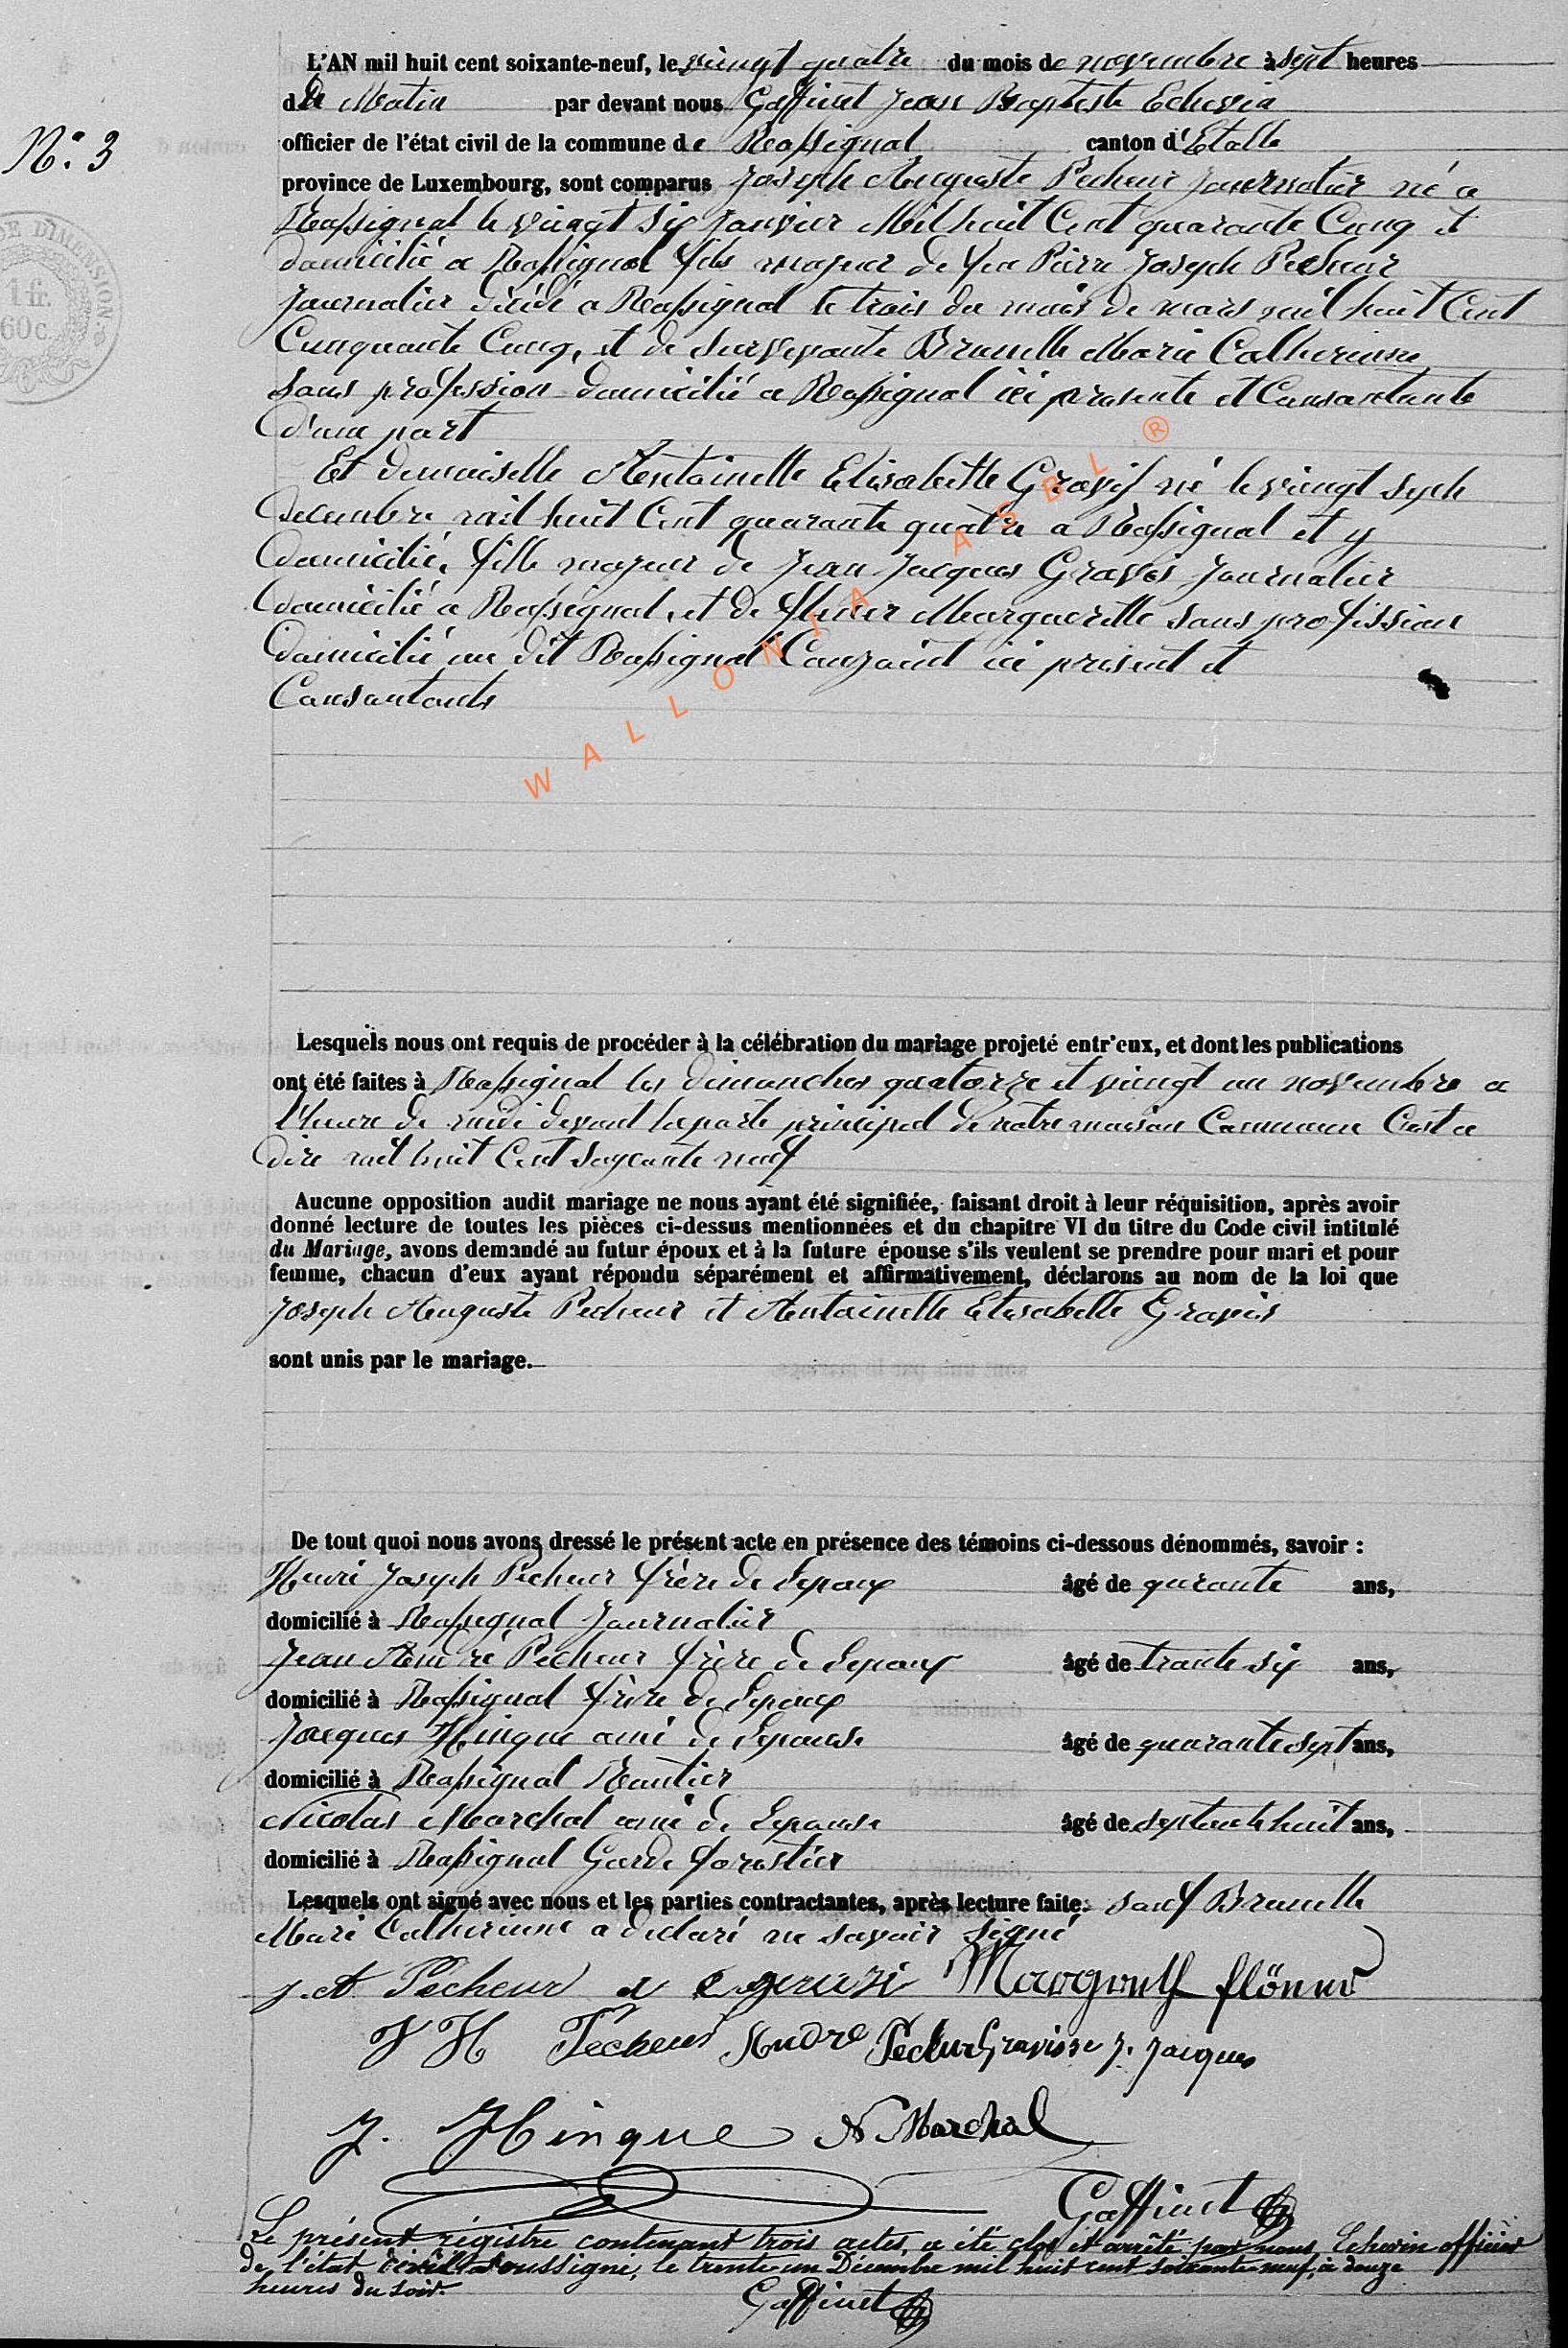 L'AN mil huit cent soixante-neuf, le vingt quatre du mois de novembre à sept heures
du Matin par devant nous Gaffinet Jean Baptiste Echevin
officier de l'état civil de la commune de Rossignol canton d'Etalle
N.º 3
province de Luxembourg, sont comparus Joseph Auguste Pecheur Journalier né a
DE DIMENSION
1 fr.
60 c.
Rossignol le vingt six Janvier Mil huit Cent quarante Cinq et
domicilié a Rossignol fils majeur de feu Pierre Joseph Pecheur
Journalier décédé a Rossignol le trois du mois de mars mil huit Cent
Cinquante Cinq, et de survivante Brunelle Marie Catherienne
sans profession domicilié a Rossignol ici presente et Consantante
d'une part
Et demoiselle Antoinette Elisabette Gravis né le vingt sept
decembre mil huit Cent quarante quatre a Rossignol et y
domicilié, fille majeur de Jean Jacques Gravis Journalier
domicilié a Rossignol, et de Margueritte sans profission
domicilié au dit Rossignol ici présent et
Consantants
WALLONIA ASBL ®
Lesquels nous ont requis de procéder à la célébration du mariage projeté entr'eux, et dont les publications
ont été faites à Rossignol les dimanches quatorze et vingt un novembre a
l'heure de midi devant la porte principal de notre maison Commune Cest a
dire mil huit Cent soixante neuf
Aucune opposition audit mariage ne nous ayant été signifiée, faisant droit à leur réquisition, après avoir
donné lecture de toutes les pièces ci-dessus mentionnées et du chapitre VI du titre du Code civil intitulé
du Mariage, avons demandé au futur époux et à la future épouse s'ils veulent se prendre pour mari et pour
femme, chacun d'eux ayant répondu séparément et affirmativement, déclarons au nom de la loi que
Joseph Auguste Pecheur et Antoinette Elisabette Gravis
sont unis par le mariage.
De tout quoi nous avons dressé le présent acte en présence des témoins ci-dessous dénommés, savoir :
Henri Joseph Pecheur frère de Lepoux âgé de qurante ans,
domicilié à Rossignol Journalier
Jean André Pecheur frère de Lepoux âgé de trante six ans,
domicilié à Rossignol frère de Lepoux
Jacques Hinque ami de Lepouse âgé de quarante sept ans,
domicilié à Rossignol Rentier
Nicolas Marchal ami de Lepouse âgé de septante huit ans,
domicilié à Rossignol Garde forestier
Lesquels ont signé avec nous et les parties contractantes, après lecture faite. sauf Brunelle
Mari Catherienne a déclaré ne savoir signé
J. A Pecheur a e gravi Margreth flöner
J H Pécheur André Pecheur Gravisse J. Jacques
J. Hinque N Marchal
Gaffinet
Le présent régistre contenant trois actes, a été clos et arrêté par nous, Echevin officier
de l'état civil soussigné, le trente-un Décembre mil huit cent soixante-neuf, à douze
heures du soir.
Gaffinet